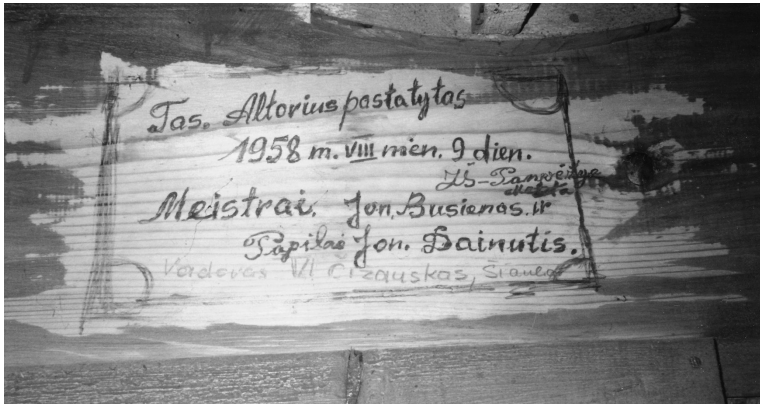 Tas. Altorius pastatytas
1958 m. VIII mėn. 9 dien.
Iš-Panevėžio
Meistrai. Jon. Busienas. ir
Papilai Jon. Dainutis.
Vadovas Vl Čižauskas, Šiauliai